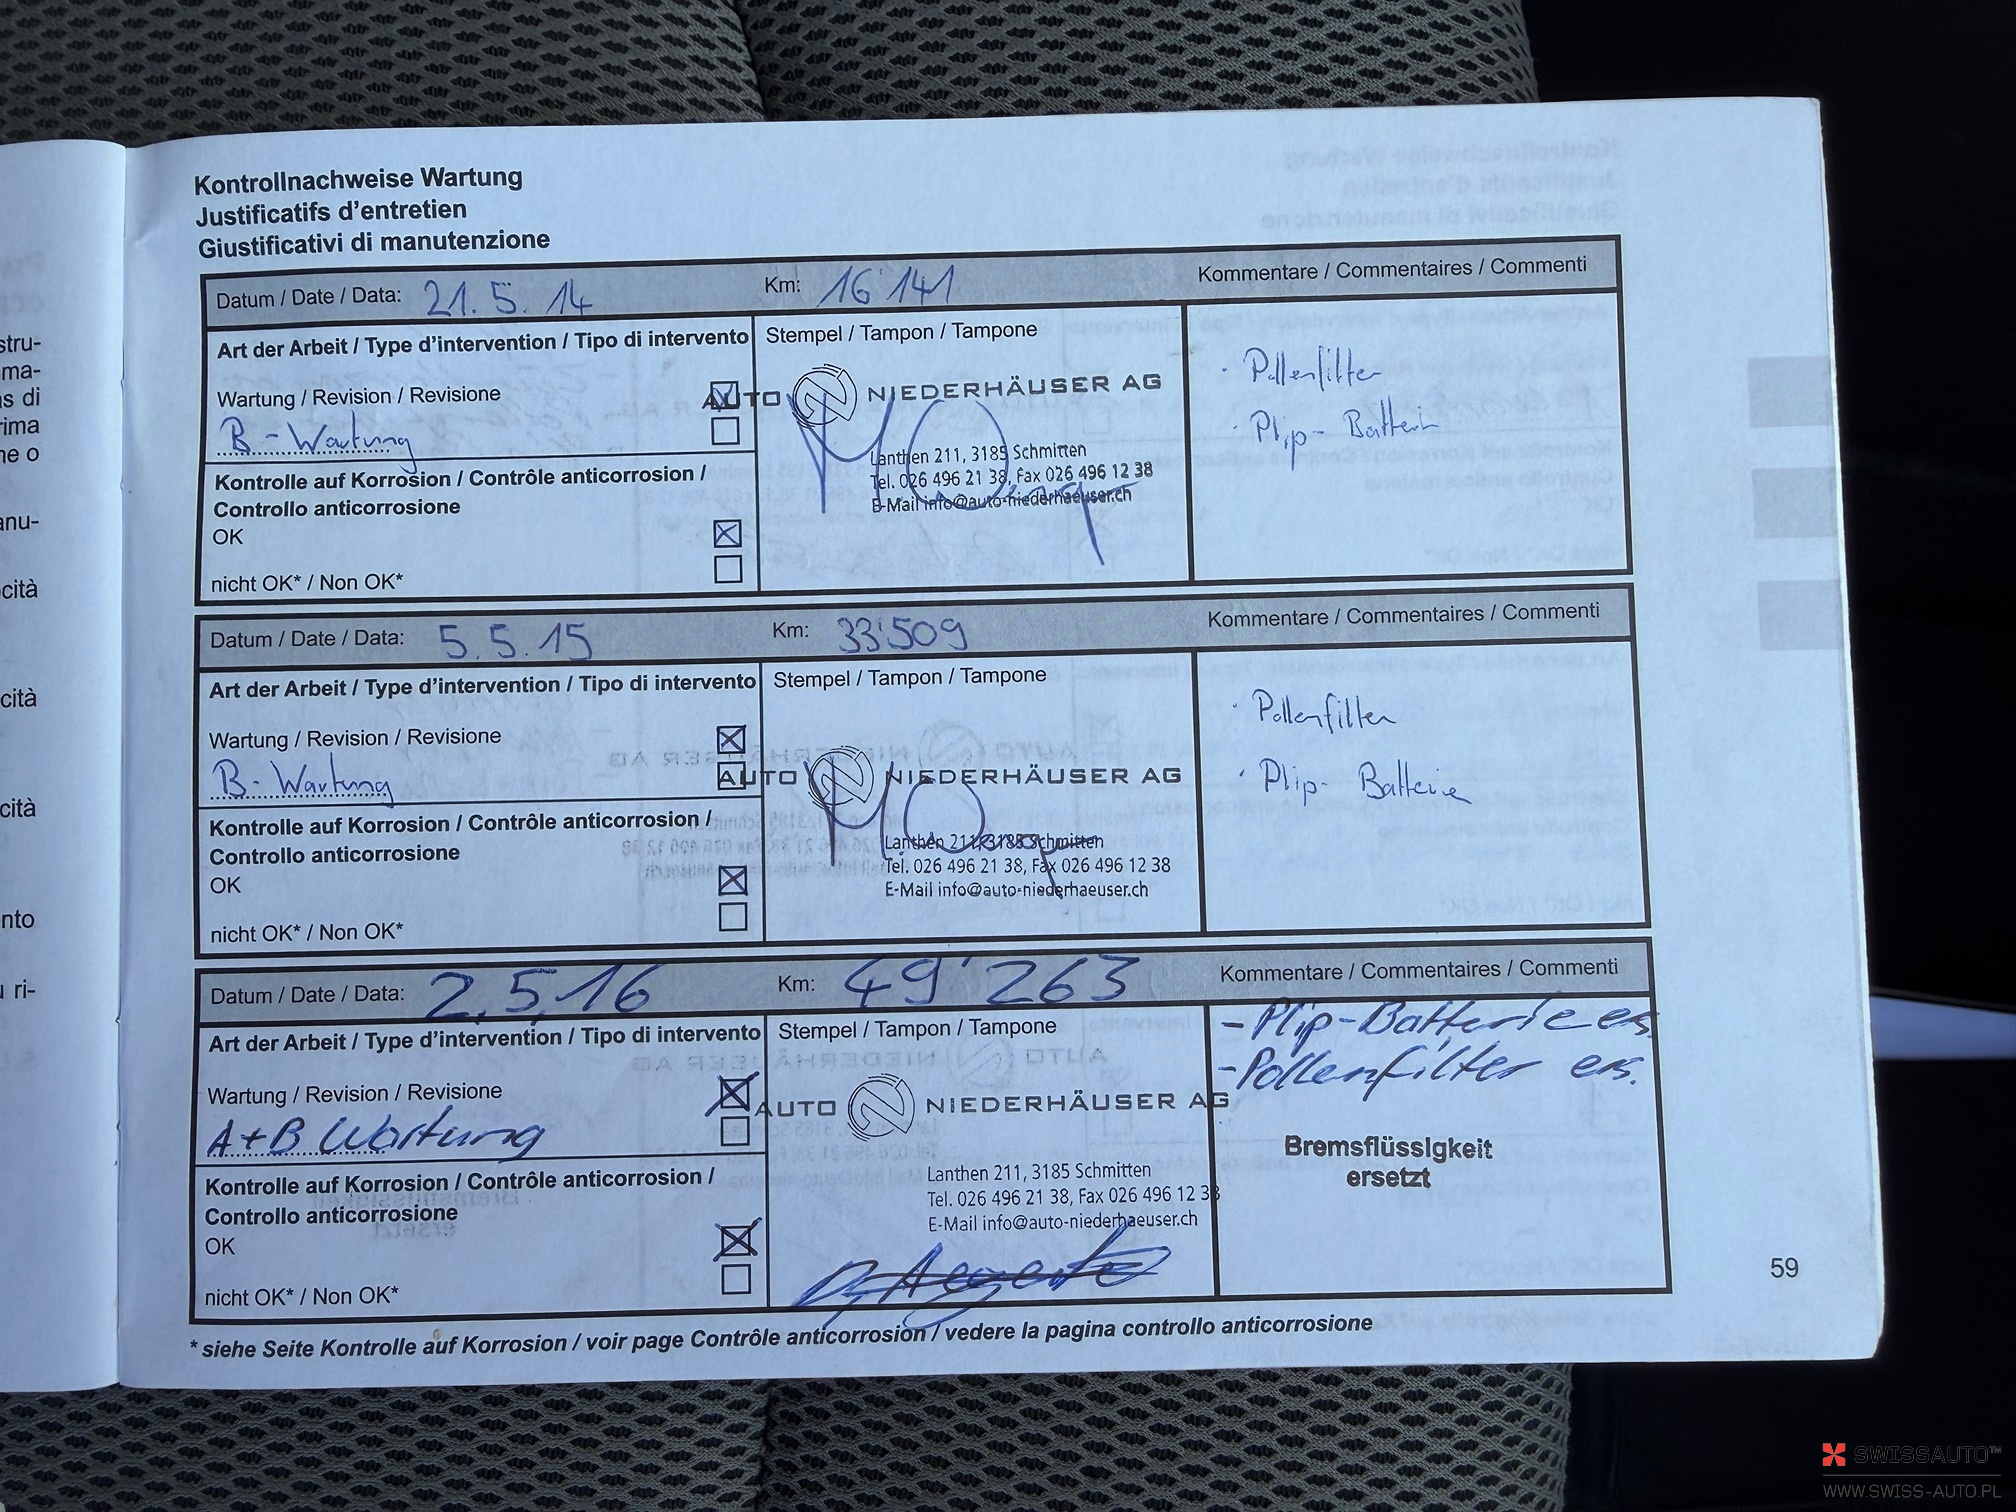 stru-
ma-
as di
rima
ne o
anu-
cità
cità
cità
nto
u ri-
Kontrollnachweise Wartung
Justificatifs d'entretien
Giustificativi di manutenzione
Datum / Date / Data: 21.5.14 Km: 16'141 Kommentare / Commentaires / Commenti
Art der Arbeit / Type d'intervention / Tipo di intervento
Stempel / Tampon / Tampone
Wartung / Revision / Revisione
B-Wartung
AUTO NIEDERHÄUSER AG
Lanthen 211, 3185 Schmitten
Tel. 026 496 21 38, Fax 026 496 12 38
E-Mail info@auto-niederhaeuser.ch
· Pollenfilter
· Plip-Batterie
Kontrolle auf Korrosion / Contrôle anticorrosion /
Controllo anticorrosione
OK
nicht OK* / Non OK*
Datum / Date / Data: 5.5.15 Km: 33'509 Kommentare / Commentaires / Commenti
Art der Arbeit / Type d'intervention / Tipo di intervento
Stempel / Tampon / Tampone
Wartung / Revision / Revisione
B-Wartung
AUTO NIEDERHÄUSER AG
Lanthen 211, 3185 Schmitten
Tel. 026 496 21 38, Fax 026 496 12 38
E-Mail info@auto-niederhaeuser.ch
· Pollenfilter
· Plip-Batterie
Kontrolle auf Korrosion / Contrôle anticorrosion /
Controllo anticorrosione
OK
nicht OK* / Non OK*
Datum / Date / Data: 2.5.16 Km: 49'263 Kommentare / Commentaires / Commenti
Art der Arbeit / Type d'intervention / Tipo di intervento
Stempel / Tampon / Tampone
Wartung / Revision / Revisione
A+B Wartung
AUTO NIEDERHÄUSER AG
Lanthen 211, 3185 Schmitten
Tel. 026 496 21 38, Fax 026 496 12 38
E-Mail info@auto-niederhaeuser.ch
- Plip-Batterie ers.
- Pollenfilter ers.
Bremsflüssigkeit
ersetzt
Kontrolle auf Korrosion / Contrôle anticorrosion /
Controllo anticorrosione
OK
nicht OK* / Non OK*
* siehe Seite Kontrolle auf Korrosion / voir page Contrôle anticorrosion / vedere la pagina controllo anticorrosione
59
SWISSAUTO™
WWW.SWISS-AUTO.PL